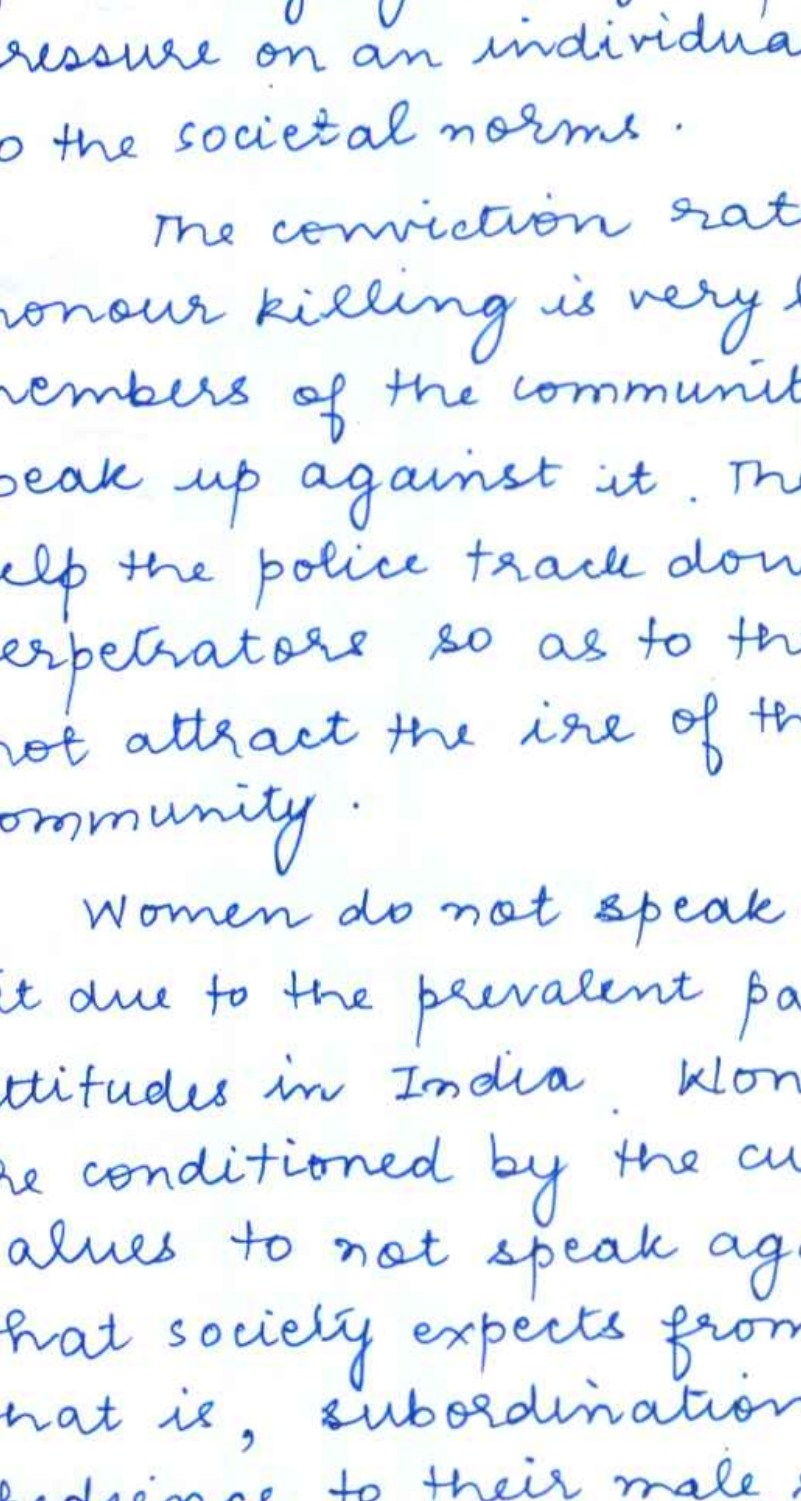 ressure on an individua
o the societal norms.
The conviction rat
onour killing is very l
members of the communit
peak up against it. The
elp the police track dow
erpetrators so as to th
not attract the ire of th
ommunity.
Women do not speak
it due to the prevalent pa
ttitudes in India. Wom
re conditioned by the cu
alues to not speak aga
hat society expects from
hat is, subordination
to their male